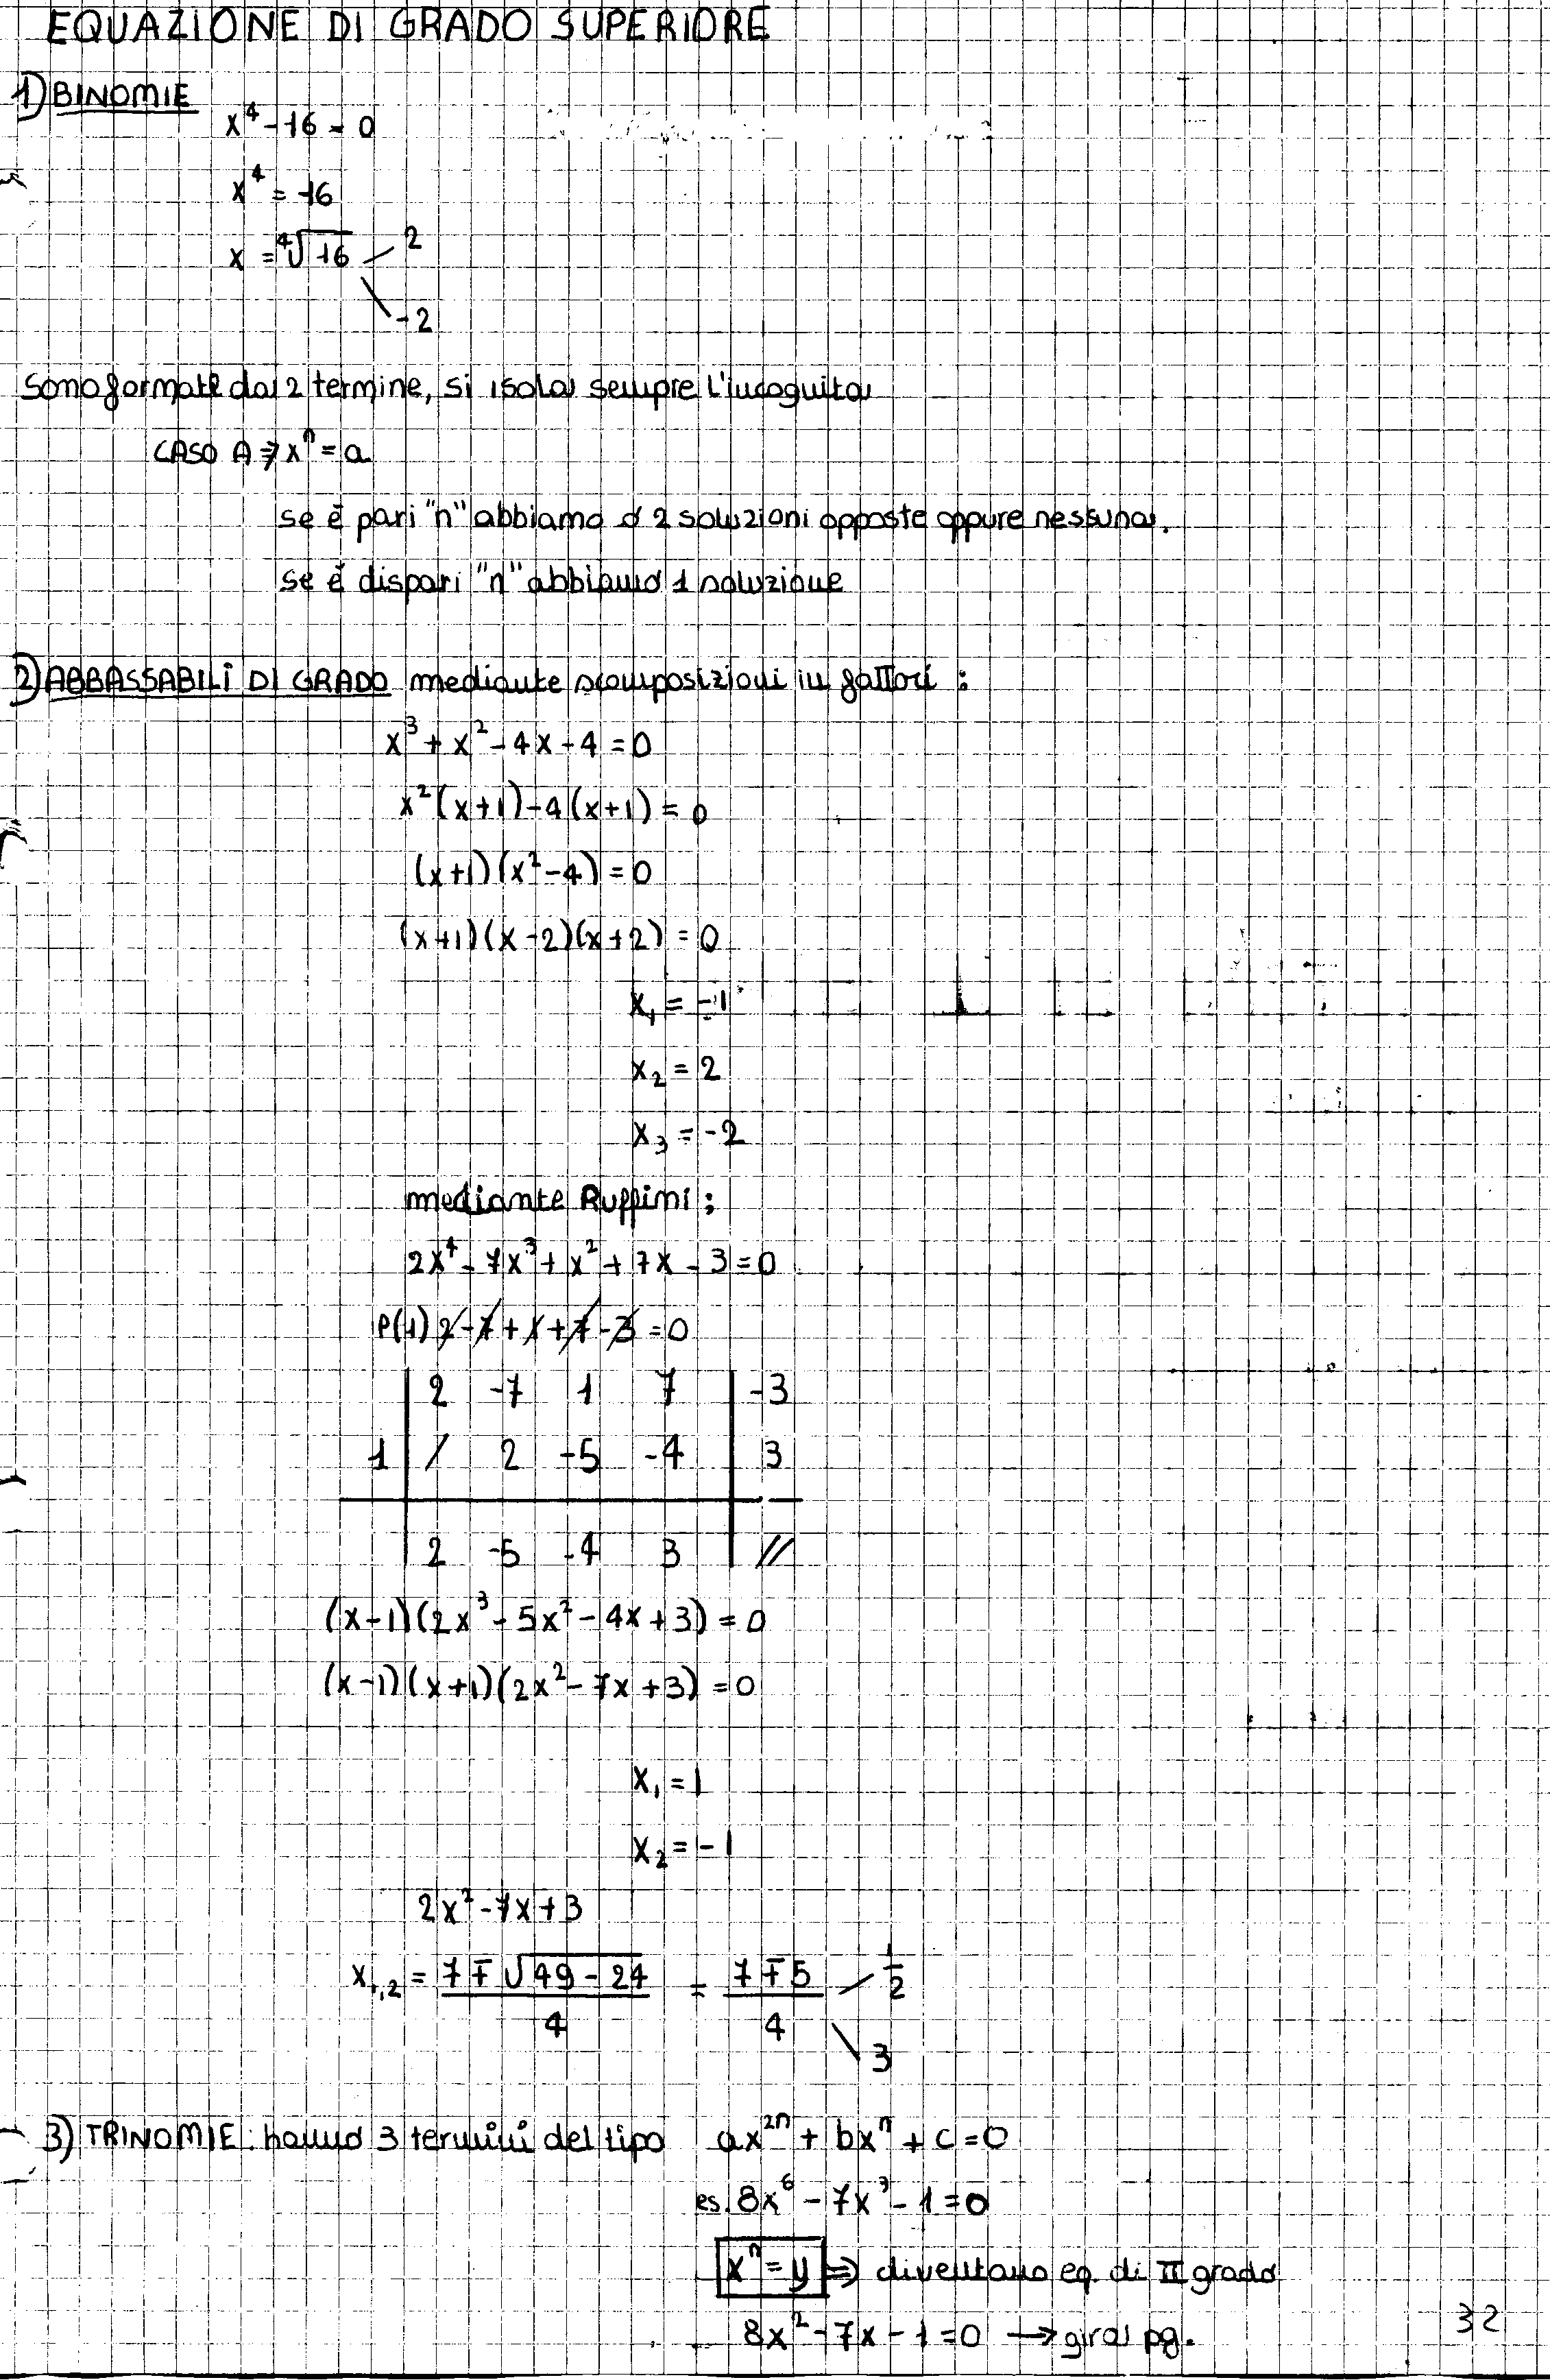 EQUAZIONE DI GRADO SUPERIORE
1) BINOMIE
x⁴-16=0
x⁴=16
x=⁴√16 2
-2
Sono formate da 2 termine, si isola sempre l'incognita
CASO A ⇒ xⁿ=a
se è pari "n" abbiamo 2 soluzioni opposte oppure nessuna.
se è dispari "n" abbiamo 1 soluzione
2) ABBASSABILI DI GRADO mediante scomposizioni in fattori:
x³+x²-4x-4=0
x²(x+1)-4(x+1)=0
(x+1)(x²-4)=0
(x+1)(x-2)(x+2)=0
x₁=-1
x₂=2
x₃=-2
mediante Ruffini:
2x⁴-7x³+x²+7x-3=0
P(1) 2-7+1+7-3=0
2 -7 1 7 -3
1 / 2 -5 -4 3
2 -5 -4 3 //
(x-1)(2x³-5x²-4x+3)=0
(x-1)(x+1)(2x²-7x+3)=0
x₁=1
x₂=-1
2x²-7x+3
x₁,₂ = 7∓√49-24 / 4 = 7∓5 / 4 1/2
3
3) TRINOMIE: hanno 3 termini del tipo ax²ⁿ+bxⁿ+c=0
es. 8x⁶-7x³-1=0
xⁿ=y ⇒ diventano eq. di II grado
8x²-7x-1=0 → gira pg.
32